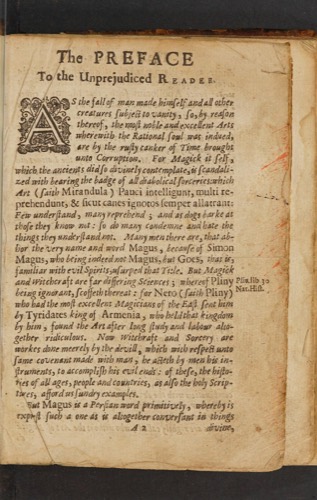 The PREFACE
To the Unprejudiced READER.
AS the fall of man made himself and all other
creatures subject to vanity, so, by reason
thereof, the most noble and excellent Arts
wherewith the Rational soul was indued,
are by the rusty canker of Time brought
unto Corruption. For Magick it self,
which the ancients did so divinely contemplate, is scandali-
zed with bearing the badge of all diabolical sorceries: which
Art (saith Mirandula) Pauci intelligunt, multi re-
prehendunt, & sicut canes ignotos semper allatrant:
Few understand, many reprehend; and as dogs barke at
those they know not: so do many condemne and hate the
things they understand not. Many men there are, that ab-
hor the very name and word Magus, because of Simon
Magus, who being indeed not Magus, but Goes, that is,
familiar with evil Spirits, usurped that Title. But Magick
and Witchcraft are far differing Sciences; whereof Pliny
being ignorant, scoffeth thereat: for Nero (saith Pliny)
Plin. lib. 30
Nat. Hist.
who had the most excellent Magicians of the East sent him
by Tyridates king of Armenia, who held that kingdom
by him, found the Art after long study and labour alto-
gether ridiculous. Now Witchcraft and Sorcery are
workes done meerely by the devill, which with respect unto
some covenant made with man, he acteth by men his in-
struments, to accomplish his evil ends: of these, the histo-
ries of all ages, people and countries, as also the holy Scrip-
tures, afford us sundry examples.
But Magus is a Persian word primitively, whereby is
exprest such a one as is altogether conversant in things
A 2
divine,